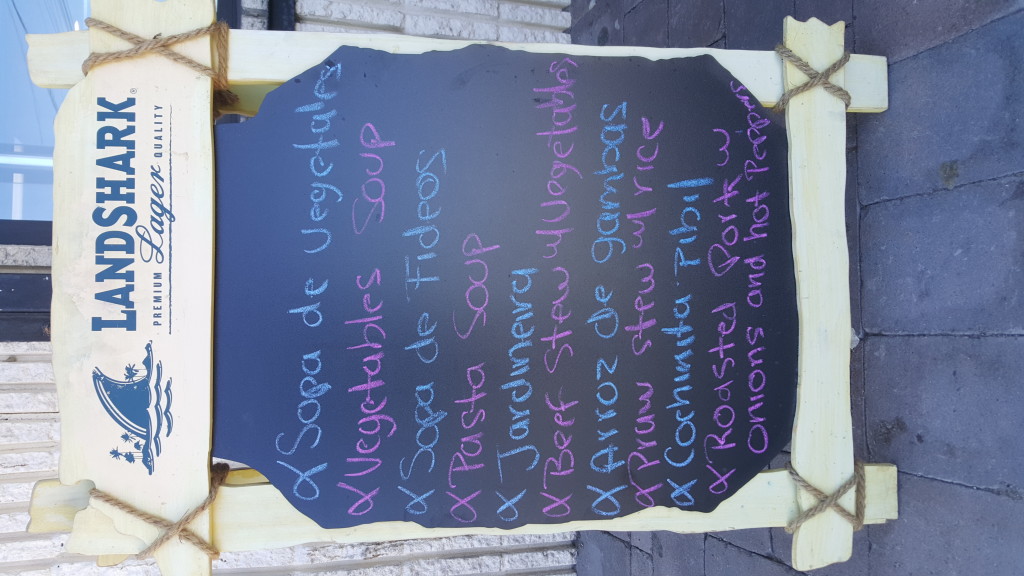 LANDSHARK®
Lager
PREMIUM QUALITY
α Sopa de Vegetales
α Vegetables Soup
α Sopa de Fideos
α Pasta Soup
α Jardinera
α Beef Stew w/Vegetables
α Arroz de gambas
α Praw stew w/ rice
α Cochinita Pibil
α Roasted Pork w
onions and hot Peppers